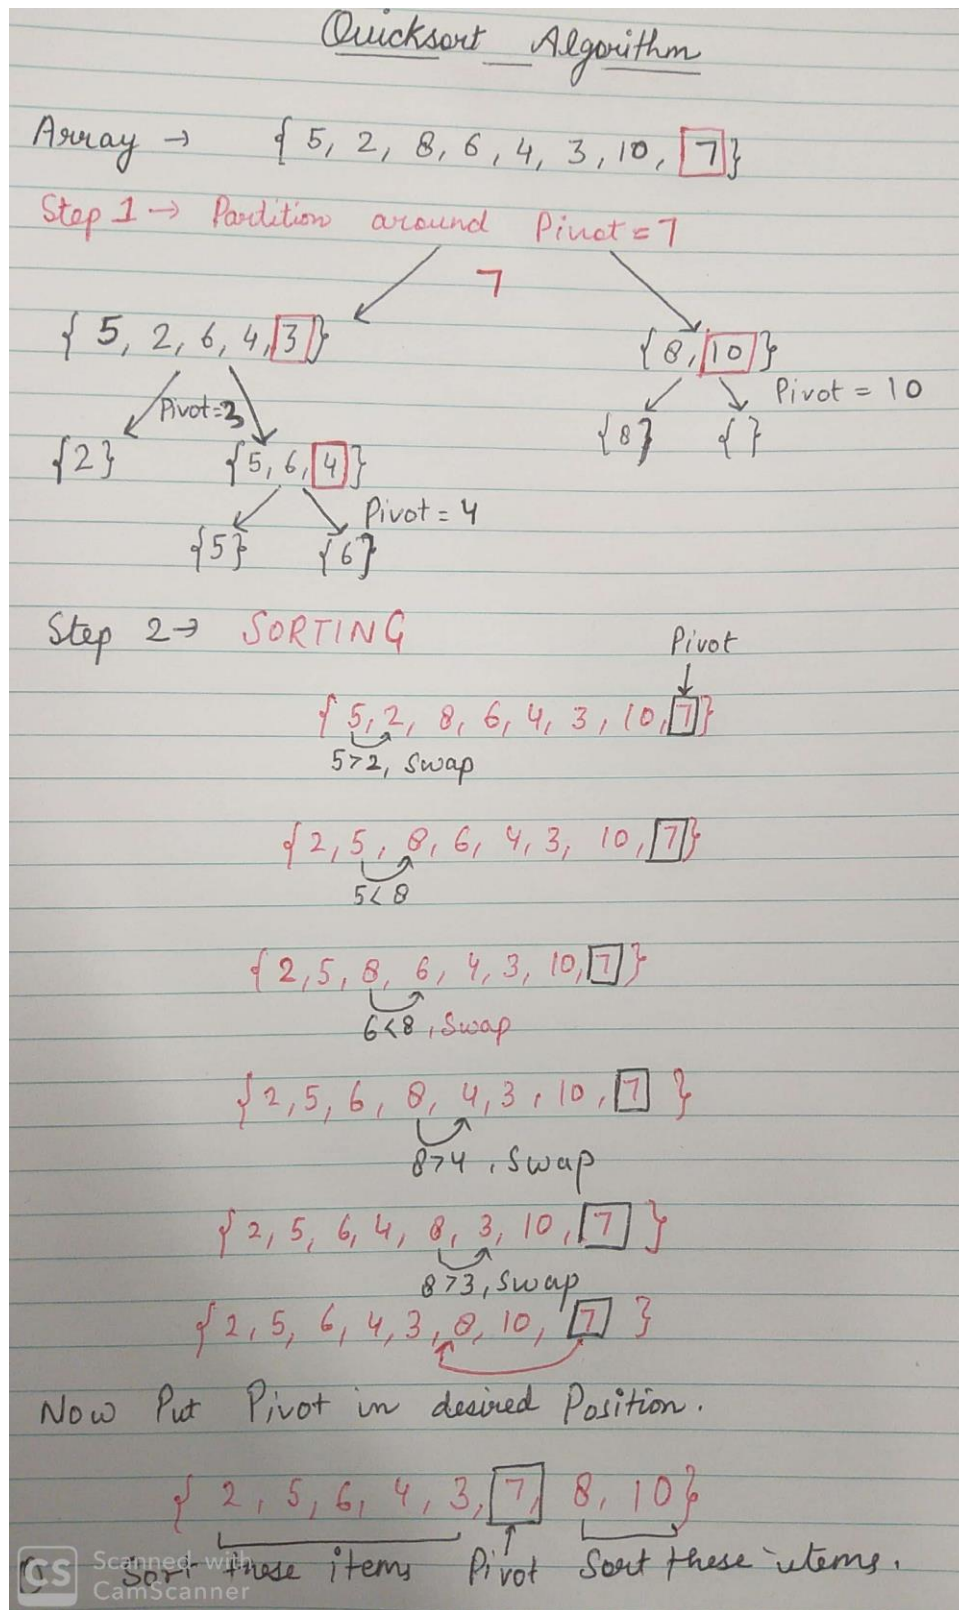 Quicksort Algorithm
Array → { 5, 2, 8, 6, 4, 3, 10, 7}
Step 1 → Partition around Pivot = 7
7
{ 5, 2, 6, 4, 3} { 8, 10 }
Pivot=3 Pivot = 10
{2} {5, 6, 4} {8} { }
Pivot = 4
{5} {6}
Step 2 → SORTING
Pivot
{ 5, 2, 8, 6, 4, 3, 10, 7}
5>2, Swap
{ 2, 5, 8, 6, 4, 3, 10, 7}
5<8
{ 2, 5, 8, 6, 4, 3, 10, 7}
6<8, Swap
{ 2, 5, 6, 8, 4, 3, 10, 7 }
8>4, Swap
{ 2, 5, 6, 4, 8, 3, 10, 7 }
8>3, Swap
{ 2, 5, 6, 4, 3, 8, 10, 7 }
Now Put Pivot in desired Position.
{ 2, 5, 6, 4, 3, 7, 8, 10}
Sort these items Pivot Sort these items.
CS Scanned with
CamScanner